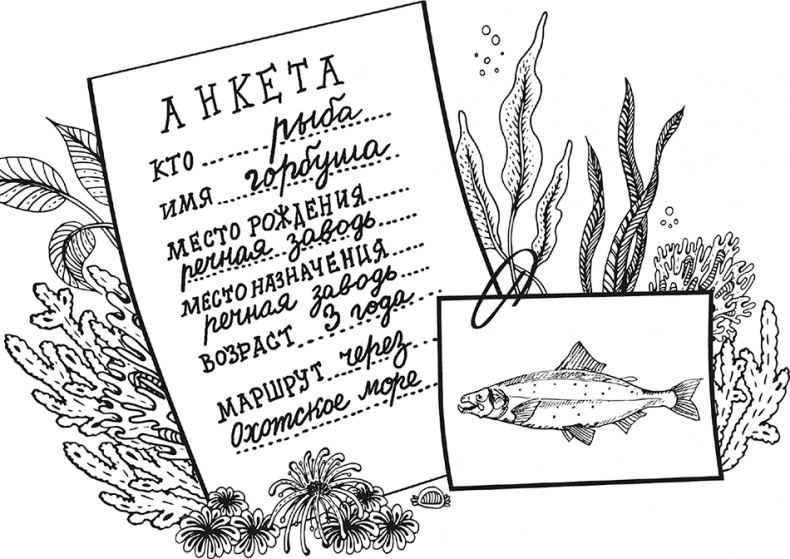 АНКЕТА
КТО рыба
ИМЯ горбуша
МЕСТО РОЖДЕНИЯ
речная заводь
МЕСТО НАЗНАЧЕНИЯ
речная заводь
ВОЗРАСТ 3 года
МАРШРУТ через
Охотское море